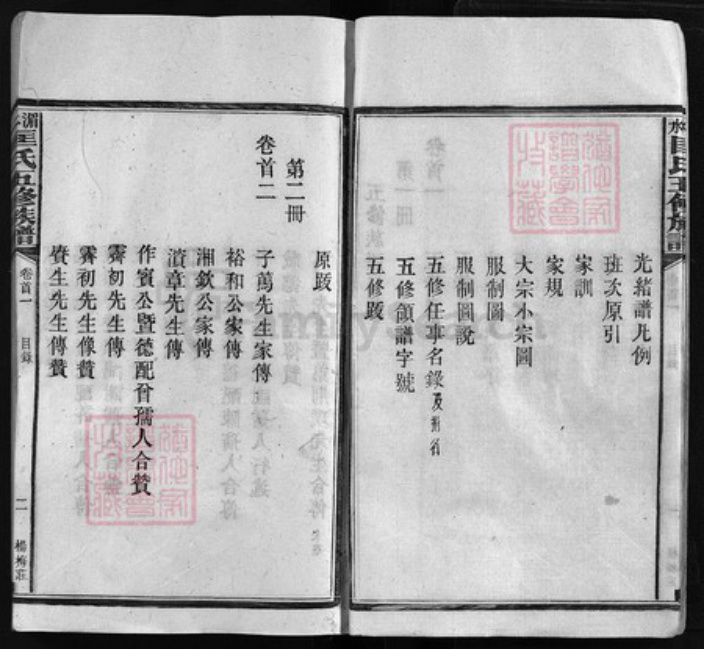 光緒譜凡例
班次原引
家訓
家規
大宗小宗圖
服制圖
服制圖說
五修任事名錄
五修領譜字號
五修跋
原跋
第二冊
卷首二
子萬先生家傳
裕和公家傳
湘欽公家傳
濆章先生傳
作賓公暨德配曾孺人合贊
霽初先生傳
霽初先生像贊
賡生先生傳贊
匡氏五修族譜
卷首一
目錄
二
楊梅莊